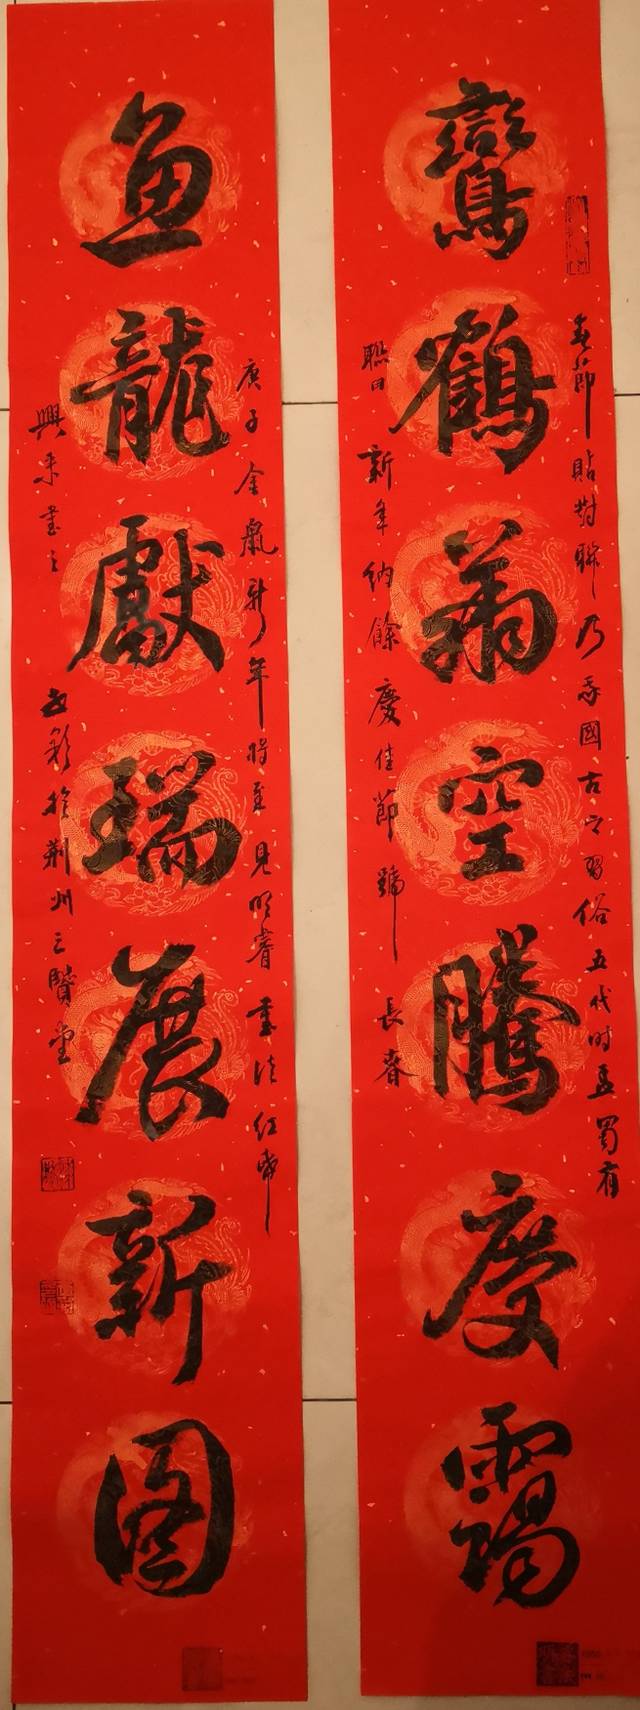 鸞鶴翔空騰慶靄
春節貼對聯乃我國古之習俗五代時孟蜀有
聯曰新年納餘慶佳節號長春
魚龍獻瑞展新圖
庚子金鼠新年將至見明睿書法紅
興來書之
於荊州三賢堂